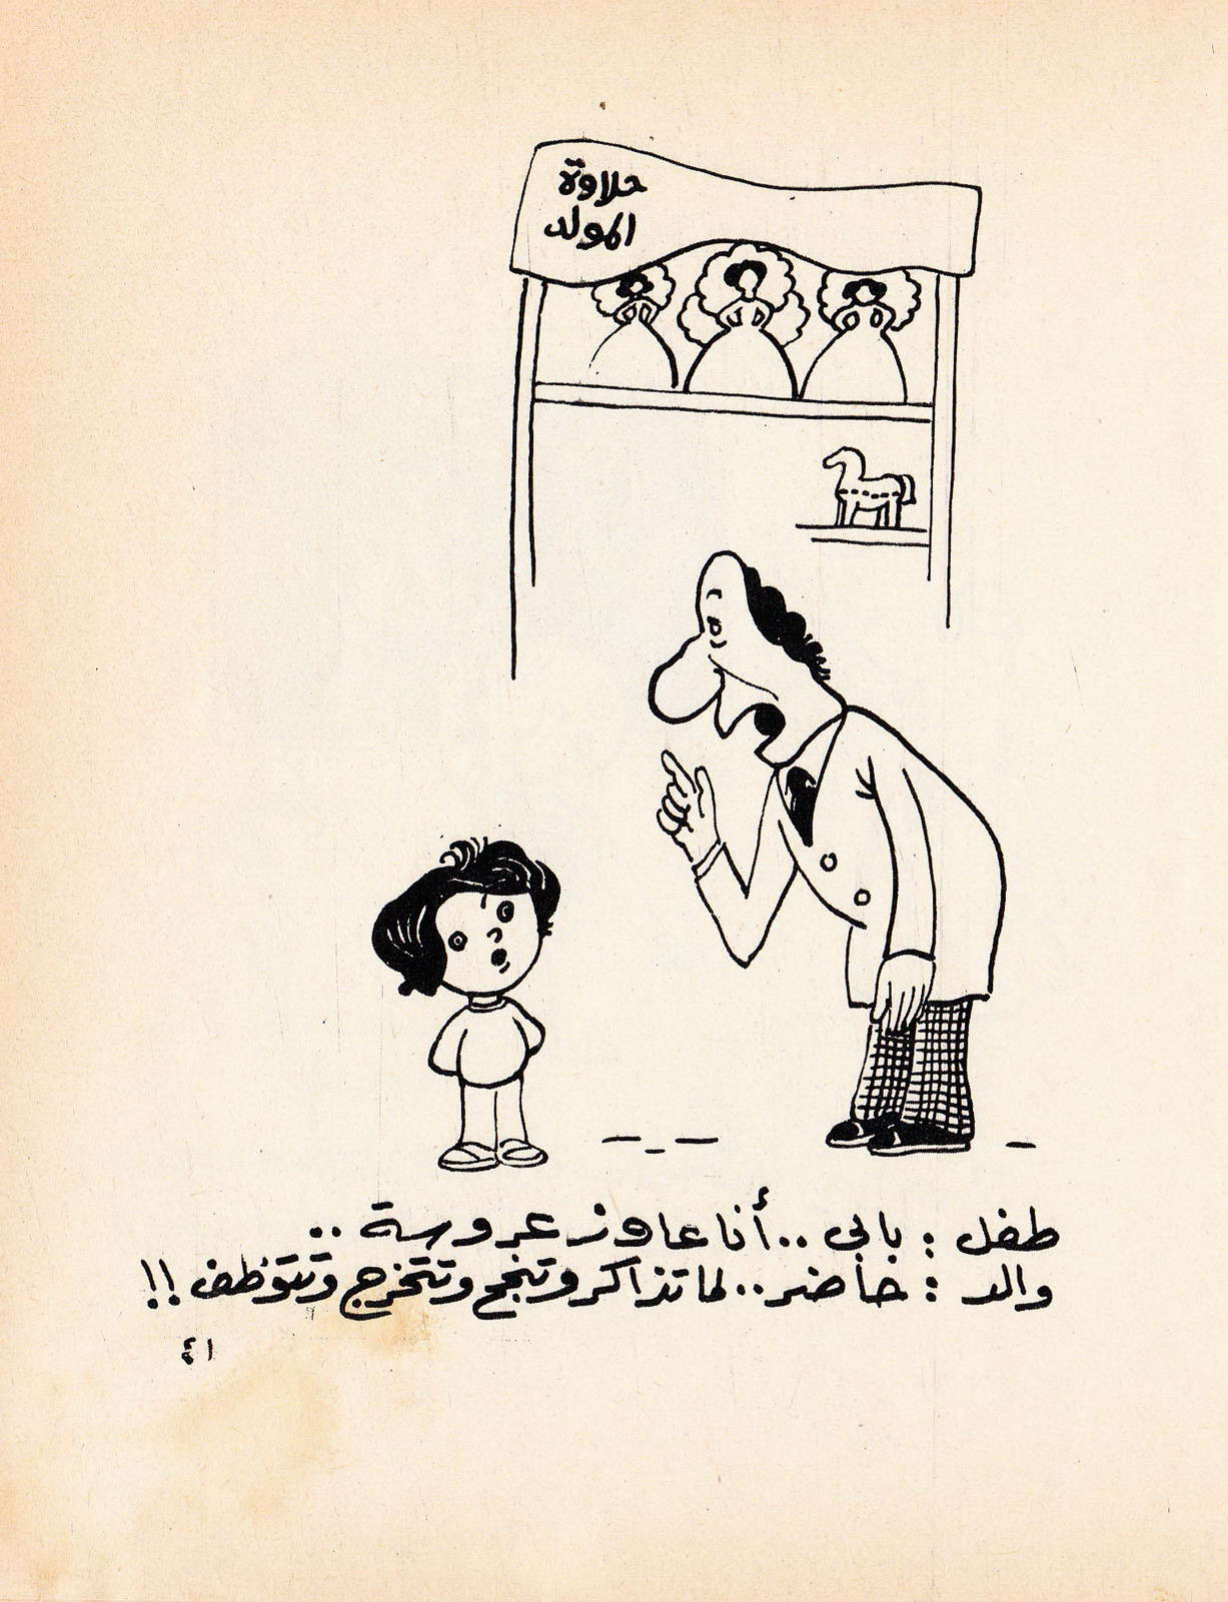 حلاوة
المولد
طفل : بابى .. أنا عاوز عروسة ..
والد : حاضر .. لما تذاكر وتنجح وتتخرج وتتوظف !!
٤١